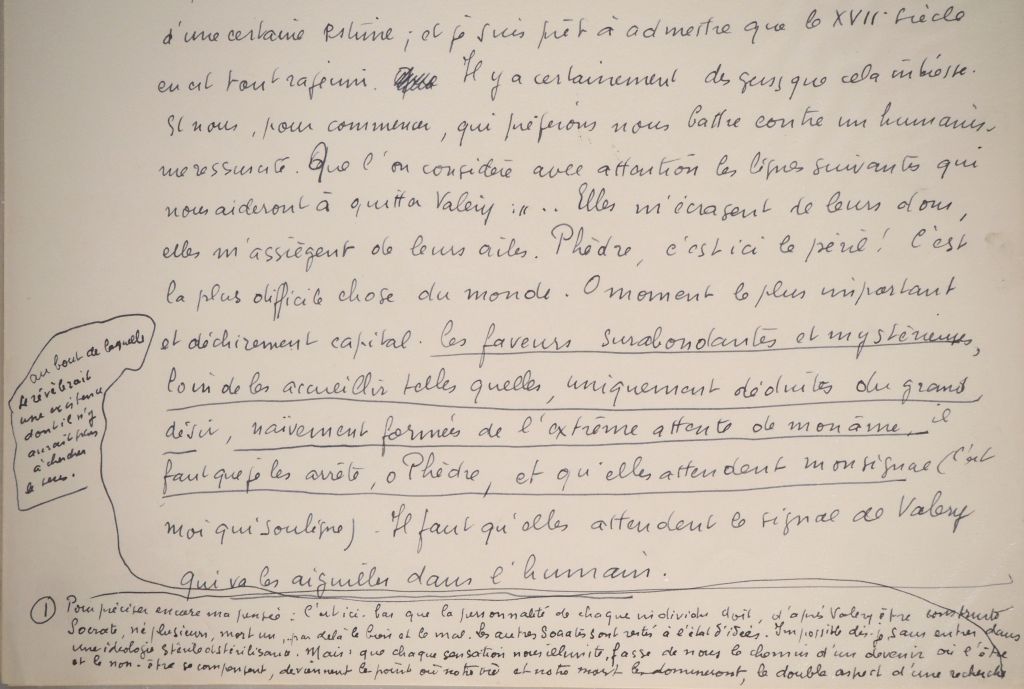 d'une certaine estime ; et je suis prêt à admettre que le XVIIe siècle
en est tout rajeuni. Il y a certainement des gens que cela intéresse.
Si nous, pour commencer, qui préférons nous battre contre un humanis-
me ressuscité. Que l'on considère avec attention les lignes suivantes qui
nous aideront à quitter Valéry : "... Elles m'écrasent de leurs dons,
elles m'assiègent de leurs ailes. Phèdre, c'est ici le péril ! C'est
la plus difficile chose du monde. O moment le plus important
et déchirement capital. Les faveurs surabondantes et mystérieuses,
loin de les accueillir telles quelles, uniquement déduites du grand
désir, naïvement formées de l'extrême attente de mon âme, il
faut que je les arrête, o Phèdre, et qu'elles attendent mon signal (C'est
moi qui souligne). Il faut qu'elles attendent le signal de Valéry
qui va les aiguiller dans l'humain.
au bout de laquelle
se révèlerait
une existence
dont il n'y
aurait plus
à chercher
le sens.
① Pour préciser encore ma pensée : C'est ici. que la personnalité de chaque individu doit, d'après Valéry être construite
Socrate, né plusieurs, mort un, par delà le bien et le mal. Les autres Socrates sont restés à l'état d'idées. Impossible dis-je, sans entrer dans
une idéologie Mais : que chaque sensation nous illumine, fasse de nous le chemin d'un devenir où l'être
et le non-être se compensent, deviennent le point où notre vie et notre mort les domineront, le double aspect d'une recherche